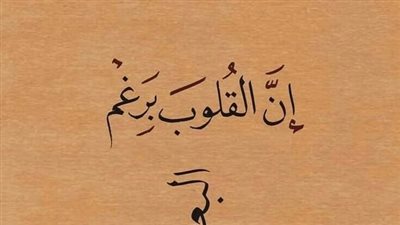 إِنَّ الْقُلُوبَ بَرِغْمِ